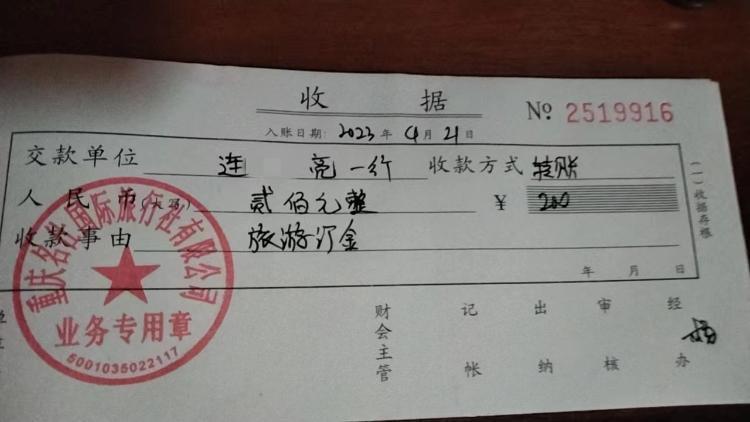 收据
№ 2519916
入账日期: 2023年4月21日
交款单位 连 亮一行 收款方式 转账
人民币(大写) 贰佰元整 ¥ 200
收款事由 旅游订金
年 月 日
(一)收据存根
财会主管 记帐 出纳 审核 经办
重庆名 国际旅行社有限公司
业务专用章
5001035022117